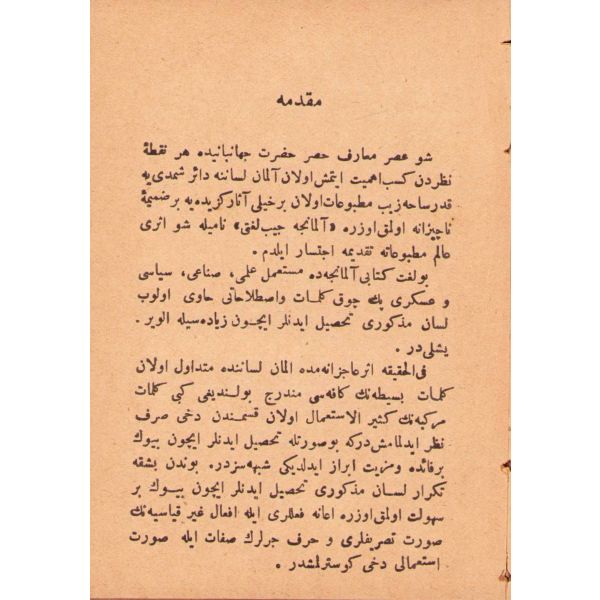 مقدمه
شو عصر معارف حصر حضرت جهانبانیده هر نقطهٔ
نظردن کسب اهمیت ایتمش اولان آلمان لساننه دائر شمدی یه
قدر ساحه زیب مطبوعات اولان برخیلی آثار کزیده یه بر ضمیمهٔ
ناچیزانه اولمق اوزره «آلمانجه جیب لغتی» نامیله شو اثری
عالم مطبوعاته تقدیمه اجتسار ایلدم .
بولغت کتابی آلمانجه ده مستعمل علمی، صناعی، سیاسی
و عسکری پك چوق کلمات واصطلاحاتی حاوی اولوب
لسان مذکوری تحصیل ایدنلر ایچون زیاده سیله الویر .
یشلی در .
فی الحقیقه اثر عاجزانه مده المان لساننده متداول اولان
کلمات بسیطه نك کافه سی مندرج بولندیغی کبی کلمات
مرکبه نك کثیر الاستعمال اولان قسمندن دخی صرف
نظر ایدلمامش درکه بوصورتله تحصیل ایدنلر ایچون بیوك
برفائده ومزیت ابراز ایدلدیکی شبهه سزدر. بوندن بشقه
تکرار لسان مذکوری تحصیل ایدنلر ایچون بیوك بر
سهولت اولمق اوزره اعانه فعللری ایله افعال غیر قیاسیه نك
صورت تصریفلری و حرف جرلرك صفات ایله صورت
استعمالی دخی کوسترلمشدر .